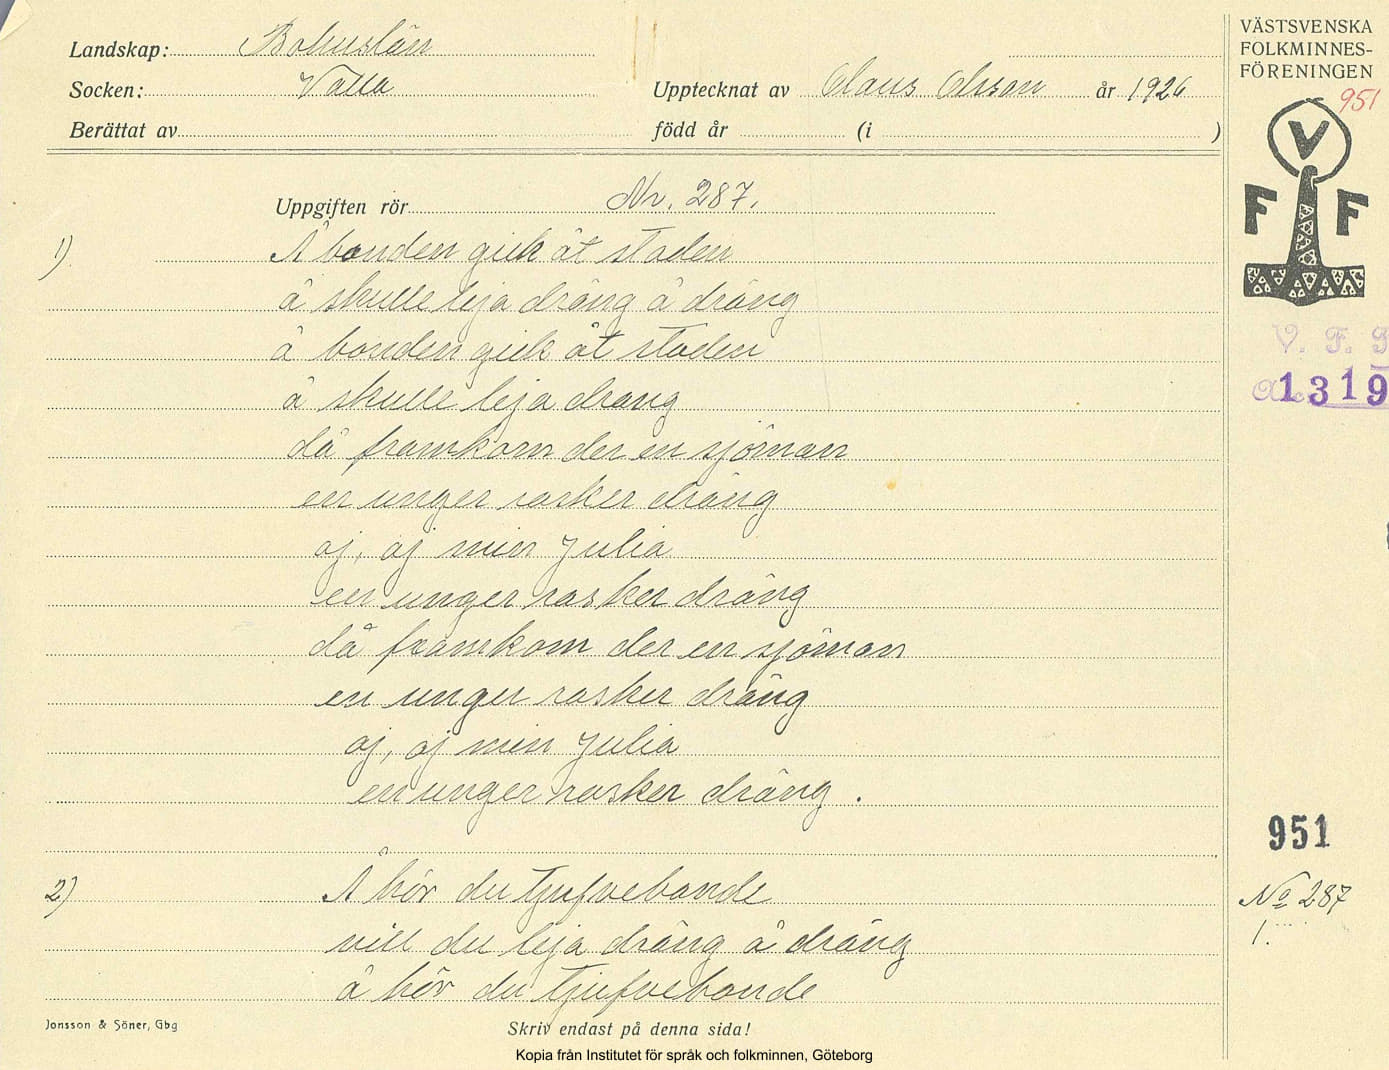 Landskap: Bohuslän
Socken: Valla
Upptecknat av Claus Olsson år 1926
Berättat av
född år (i )
VÄSTSVENSKA
FOLKMINNES-
FÖRENINGEN
951
V
F F
V. F. F
1319
Uppgiften rör Nr. 287.
1) Å bonden gick åt staden
å skulle leja dräng å dräng
å bonden gick åt staden
å skulle leja dräng
då framkom der en sjöman
en unger rasker dräng
aj, aj min Julia
en unger rasker dräng
då framkom der en sjöman
en unger rasker dräng
aj, aj min Julia
en unger rasker dräng.
951
2) Å hör du tjufvebonde
vill du leja dräng å dräng
å hör du tjufvebonde
No 287
1.
Jonsson & Söner, Gbg
Skriv endast på denna sida!
Kopia från Institutet för språk och folkminnen, Göteborg